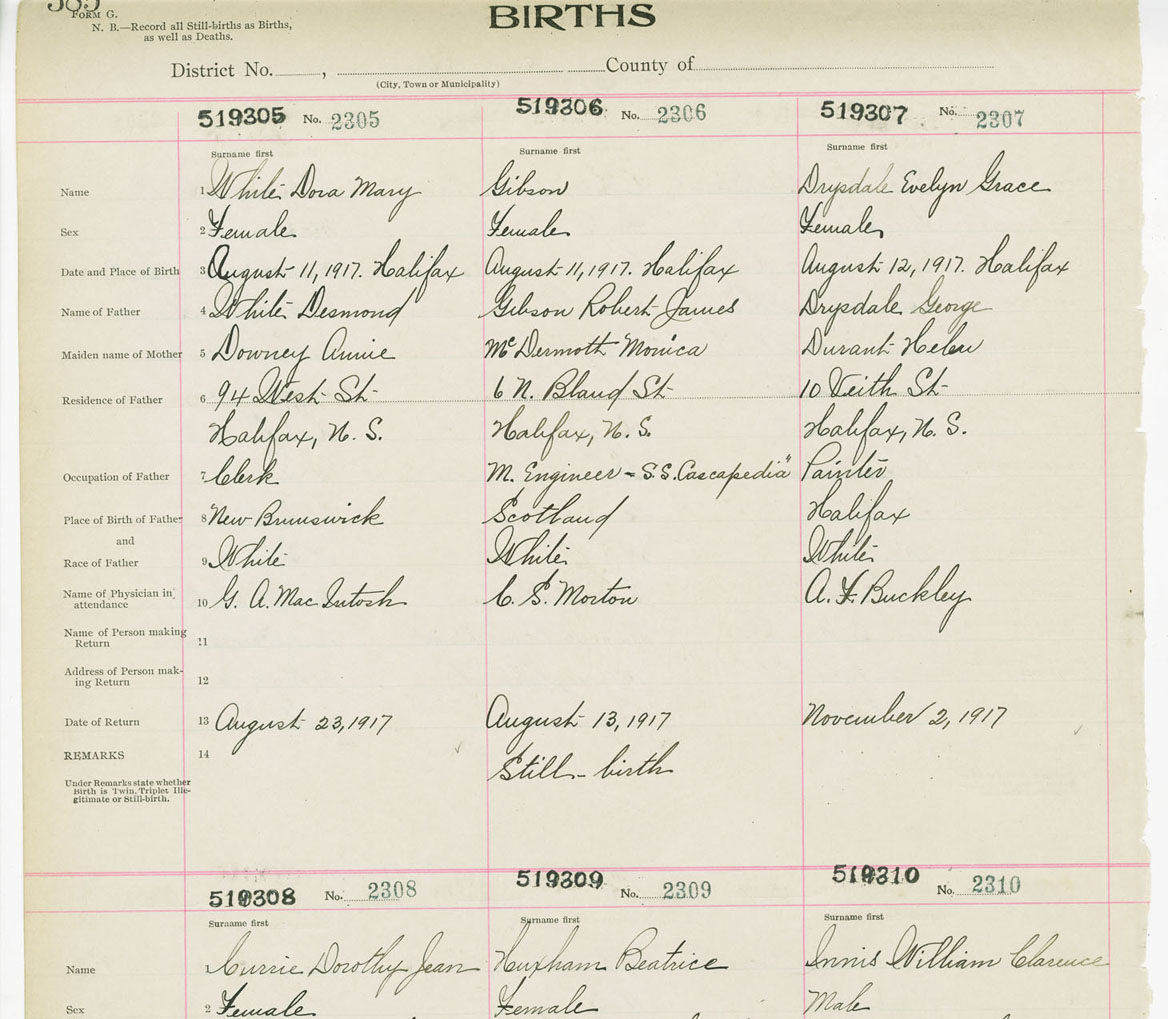 385
FORM G.
N. B.—Record all Still-births as Births,
as well as Deaths.
BIRTHS
District No. , County of
(City, Town or Municipality)
519305 No. 2305 519306 No. 2306 519307 No. 2307
Surname first Surname first Surname first
Name 1 White Dora Mary Gibson Drysdale Evelyn Grace
Sex 2 Female Female Female
Date and Place of Birth 3 August 11, 1917. Halifax August 11, 1917. Halifax August 12, 1917. Halifax
Name of Father 4 White Desmond Gibson Robert James Drysdale George
Maiden name of Mother 5 Downey Annie McDermoth Monica Durant Helen
Residence of Father 6 94 West St 6 N. Bland St 10 Veith St
Halifax, N. S. Halifax, N. S. Halifax, N. S.
Occupation of Father 7 Clerk M. Engineer - S.S. Cascapedia" Painter
Place of Birth of Father 8 New Brunswick Scotland Halifax
and
Race of Father 9 White White White
Name of Physician in
attendance 10 G. A. MacIntosh C. S. Morton A. F. Buckley
Name of Person making
Return 11
Address of Person mak-
ing Return 12
Date of Return 13 August 23, 1917 August 13, 1917 November 2, 1917
REMARKS 14 Still-birth
Under Remarks state whether
Birth is Twin, Triplet Ille-
gitimate or Still-birth.
519308 No. 2308 519309 No. 2309 519310 No. 2310
Surname first Surname first Surname first
Name 1 Currie Dorothy Jean Huxham Beatrice Innis William Clarence
Sex 2 Female Female Male